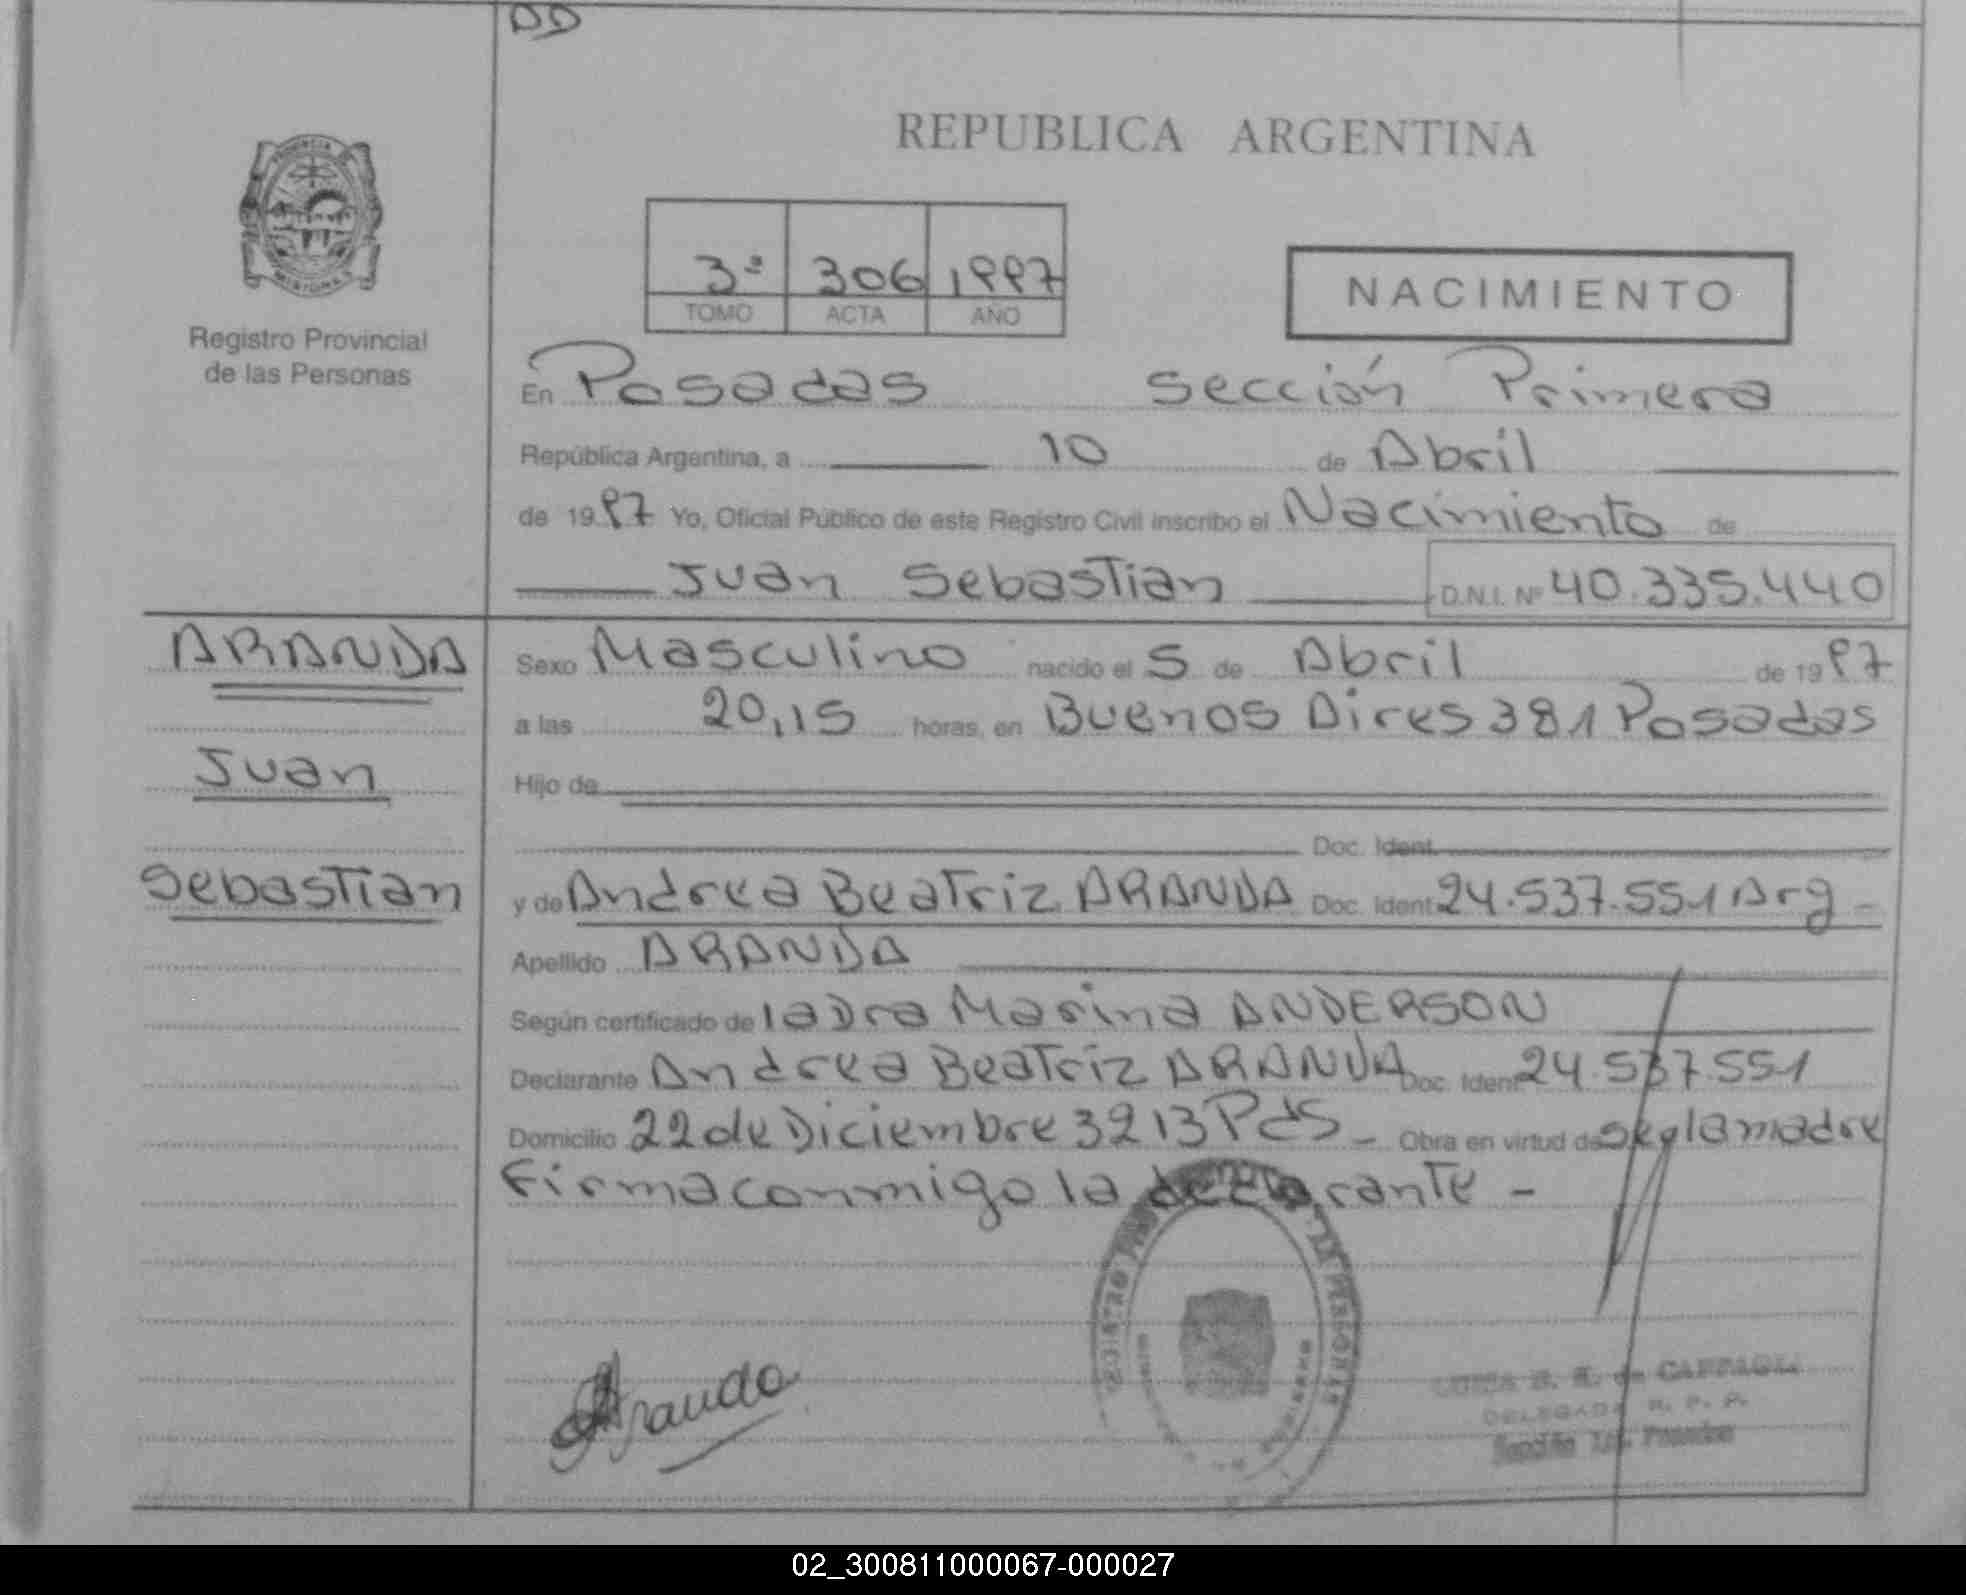 DD
REPUBLICA ARGENTINA
3ª 306 1997
TOMO ACTA AÑO
NACIMIENTO
PROVINCIA
MISIONES
Registro Provincial
de las Personas
En Posadas Sección Primera
República Argentina, a 10 de Abril
de 1997 Yo, Oficial Público de este Registro Civil inscribo el Nacimiento de
Juan Sebastian D.N.I. Nº 40.335.440
ARANDA
Juan
Sebastian
Sexo Masculino nacido el 5 de Abril de 1997
a las 20,15 horas, en Buenos Aires 381 Posadas
Hijo de
Doc. Ident.
y de Andrea Beatriz ARANDA Doc. Ident. 24.537.551 Arg -
Apellido ARANDA
Según certificado de la Dra Marina ANDERSON
Declarante Andrea Beatriz ARANDA Doc. Ident 24.537.551
Domicilio 22 de Diciembre 3213 Pds - Obra en virtud de ser la madre
Firma conmigo la declarante -
Aranda
DELEGADA R. P. P.
Sección 1ra. Posadas
02_300811000067-000027